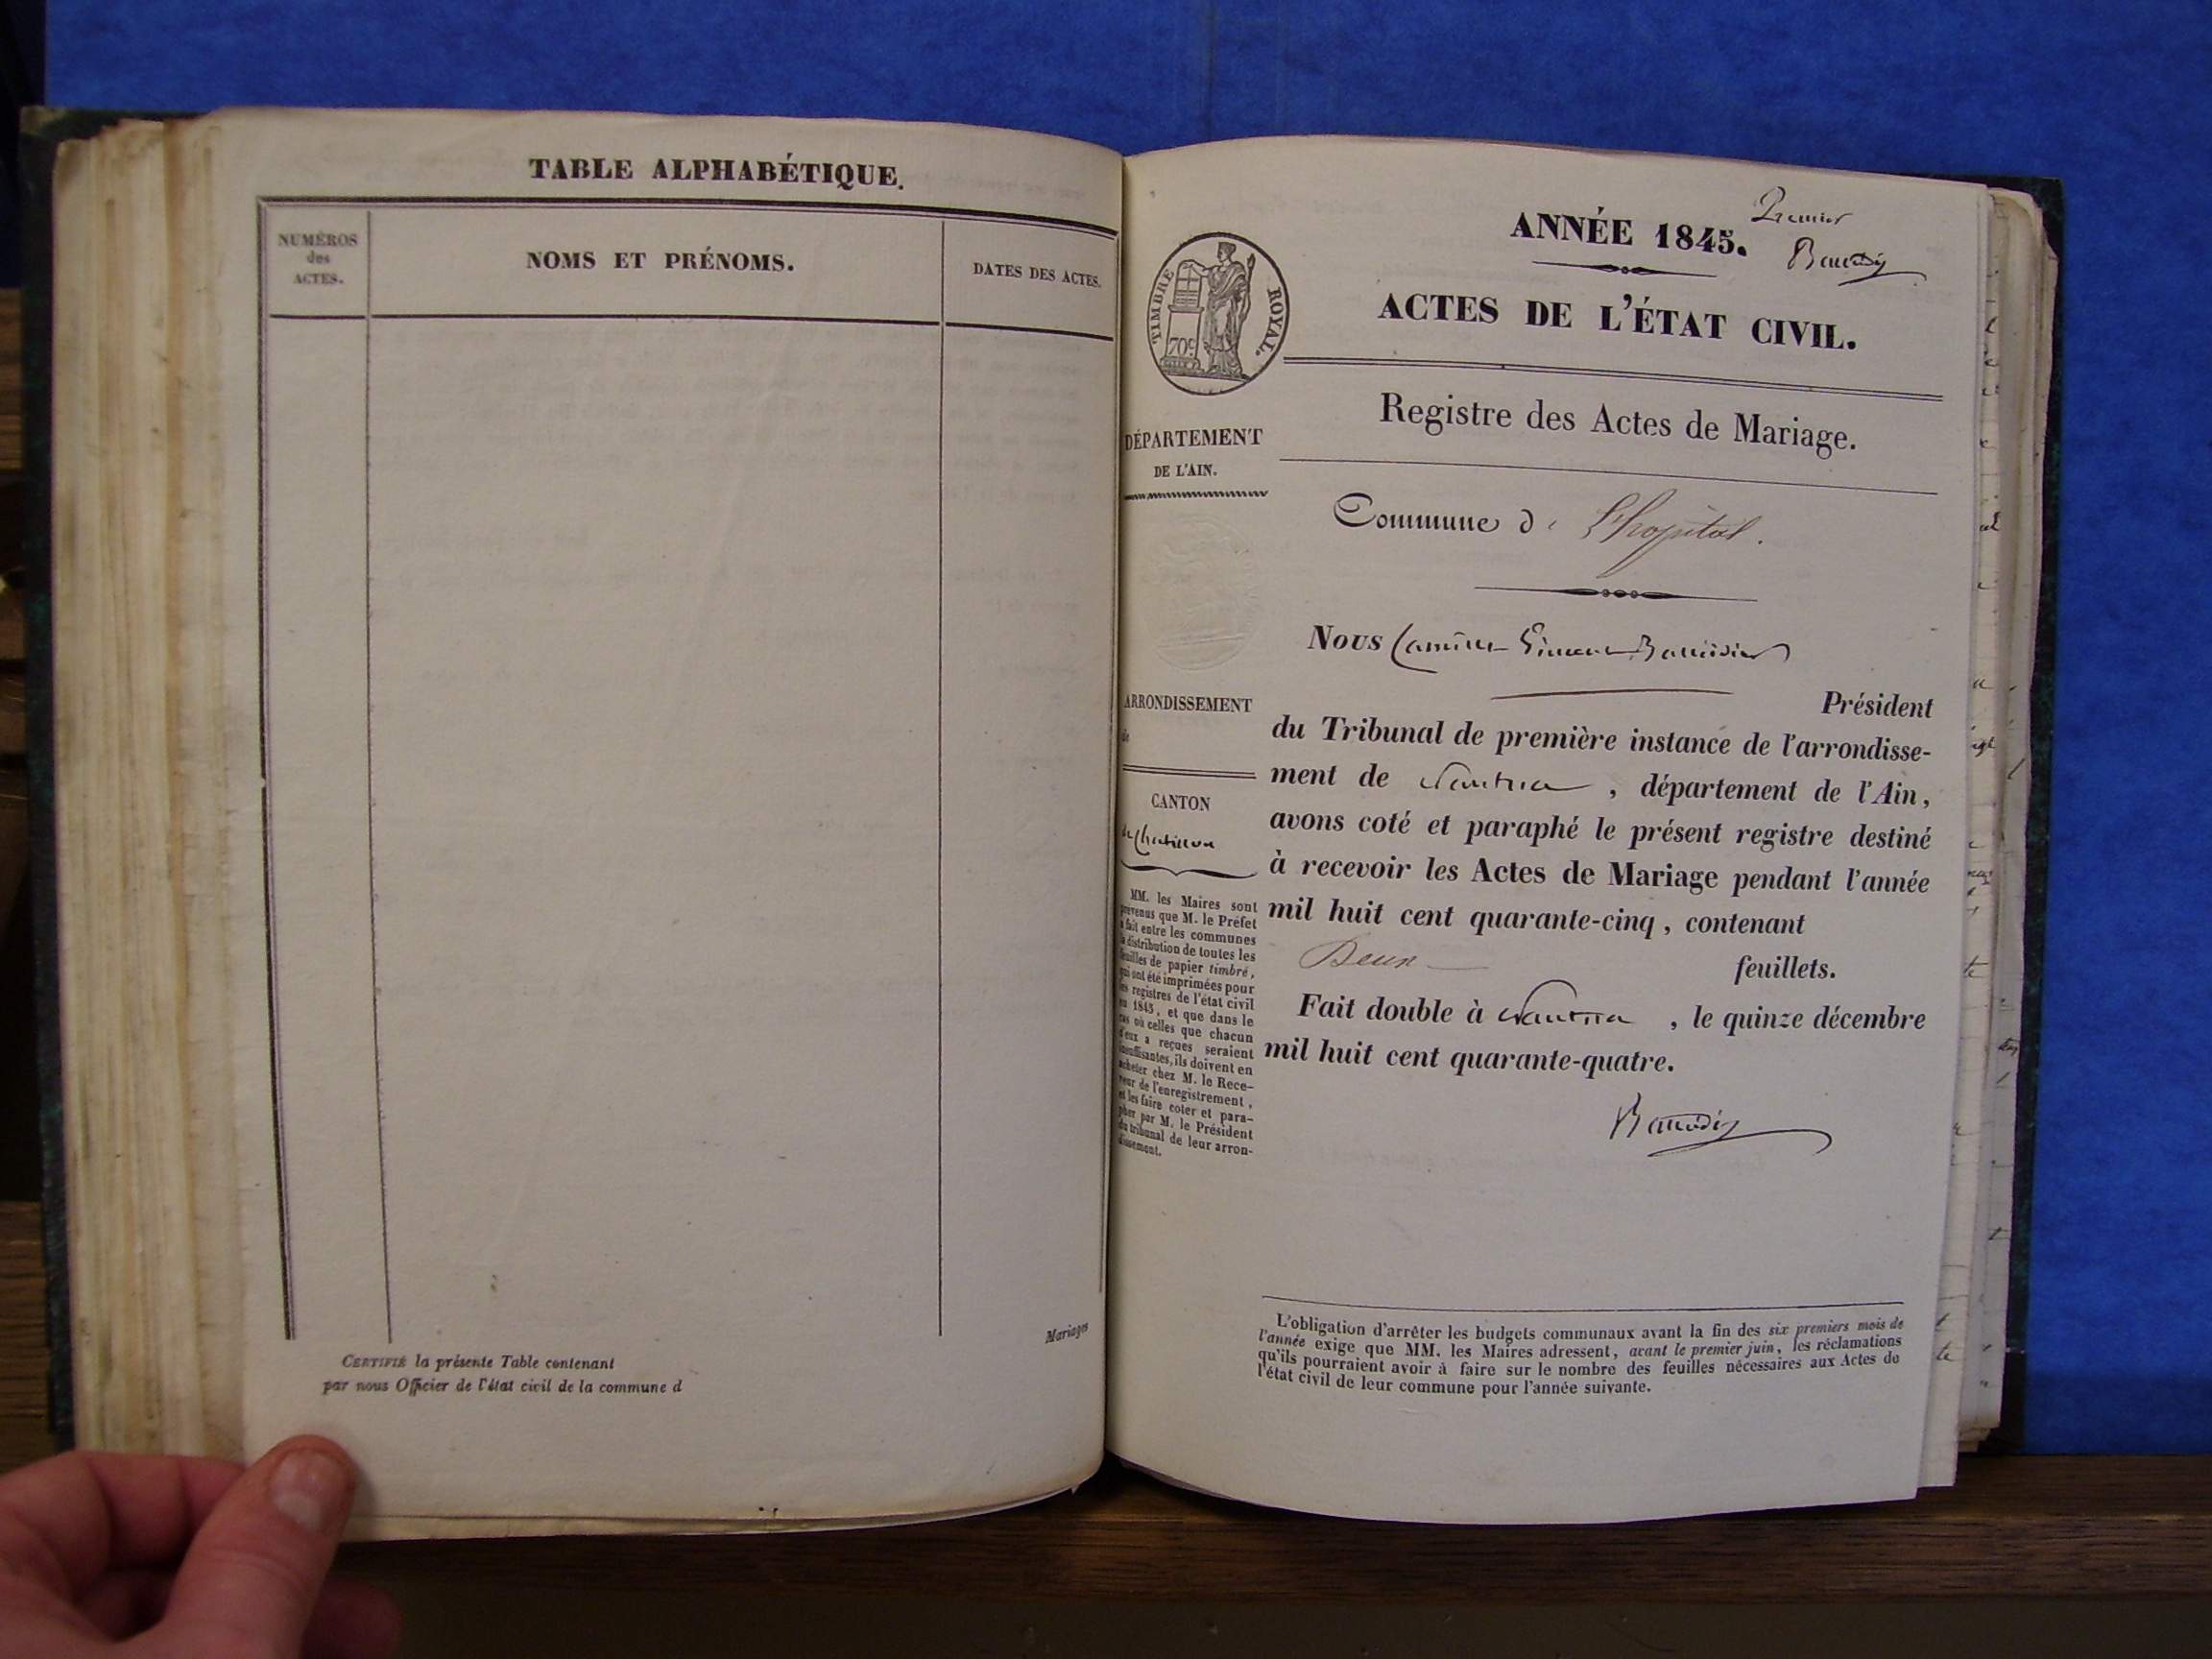 TABLE ALPHABÉTIQUE.
NUMÉROS
des
ACTES.
NOMS ET PRÉNOMS.
DATES DES ACTES.
Mariages
CERTIFIÉ la présente Table contenant
par nous Officier de l'état civil de la commune d
Premier
ANNÉE 1845.
TIMBRE ROYAL.
70c
ACTES DE L'ÉTAT CIVIL.
Registre des Actes de Mariage.
DÉPARTEMENT
DE L'AIN.
Commune d L'hopital.
Nous
ARRONDISSEMENT
de
Président
du Tribunal de première instance de l'arrondisse-
ment de Nantua, département de l'Ain,
CANTON
de Chatillon
avons coté et paraphé le présent registre destiné
à recevoir les Actes de Mariage pendant l'année
mil huit cent quarante-cinq, contenant
Deux feuillets.
Fait double à Nantua, le quinze décembre
mil huit cent quarante-quatre.
MM. les Maires sont
prévenus que M. le Préfet
a fait entre les communes
la distribution de toutes les
feuilles de papier timbré,
qui ont été imprimées pour
les registres de l'état civil
en 1845, et que dans le
cas où celles que chacun
d'eux a reçues seraient
insuffisantes, ils doivent en
acheter chez M. le Rece-
veur de l'enregistrement,
et les faire coter et para-
pher par M. le Président
du tribunal de leur arron-
dissement.
L'obligation d'arrêter les budgets communaux avant la fin des six premiers mois de
l'année exige que MM. les Maires adressent, avant le premier juin, les réclamations
qu'ils pourraient avoir à faire sur le nombre des feuilles nécessaires aux Actes de
l'état civil de leur commune pour l'année suivante.